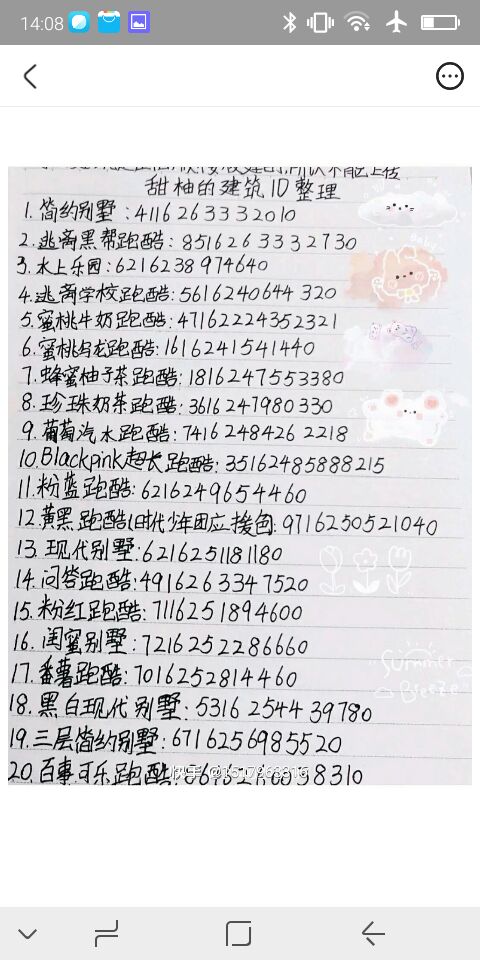 14:08
甜柚的建筑ID整理
1.简约别墅:4116263332010
2.逃离黑帮跑酷:8516263332730
3.水上乐园:6216238974640
4.逃离学校跑酷:5616240644320
5.蜜桃牛奶跑酷:47162224352321
6.蜜桃乌龙跑酷:1616241541440
7.蜂蜜柚子茶跑酷:1816247553380
8.珍珠奶茶跑酷:3616247980330
9.葡萄汽水跑酷:74162484262218
10.Blackpink超长跑酷:35162485888215
11.粉蓝跑酷:6216249654460
12.黄黑跑酷(时代少年团应援包:9716250521040
13.现代别墅:6216251181180
14.问答跑酷:4916263347520
15.粉红跑酷:7116251894600
16.闺蜜别墅:7216252286660
17.番薯跑酷:7016252814460
18.黑白现代别墅:5316254439780
19.三层简约别墅:6716256985520
20.百事可乐跑酷:
Baby
Summer
Breeze
快手